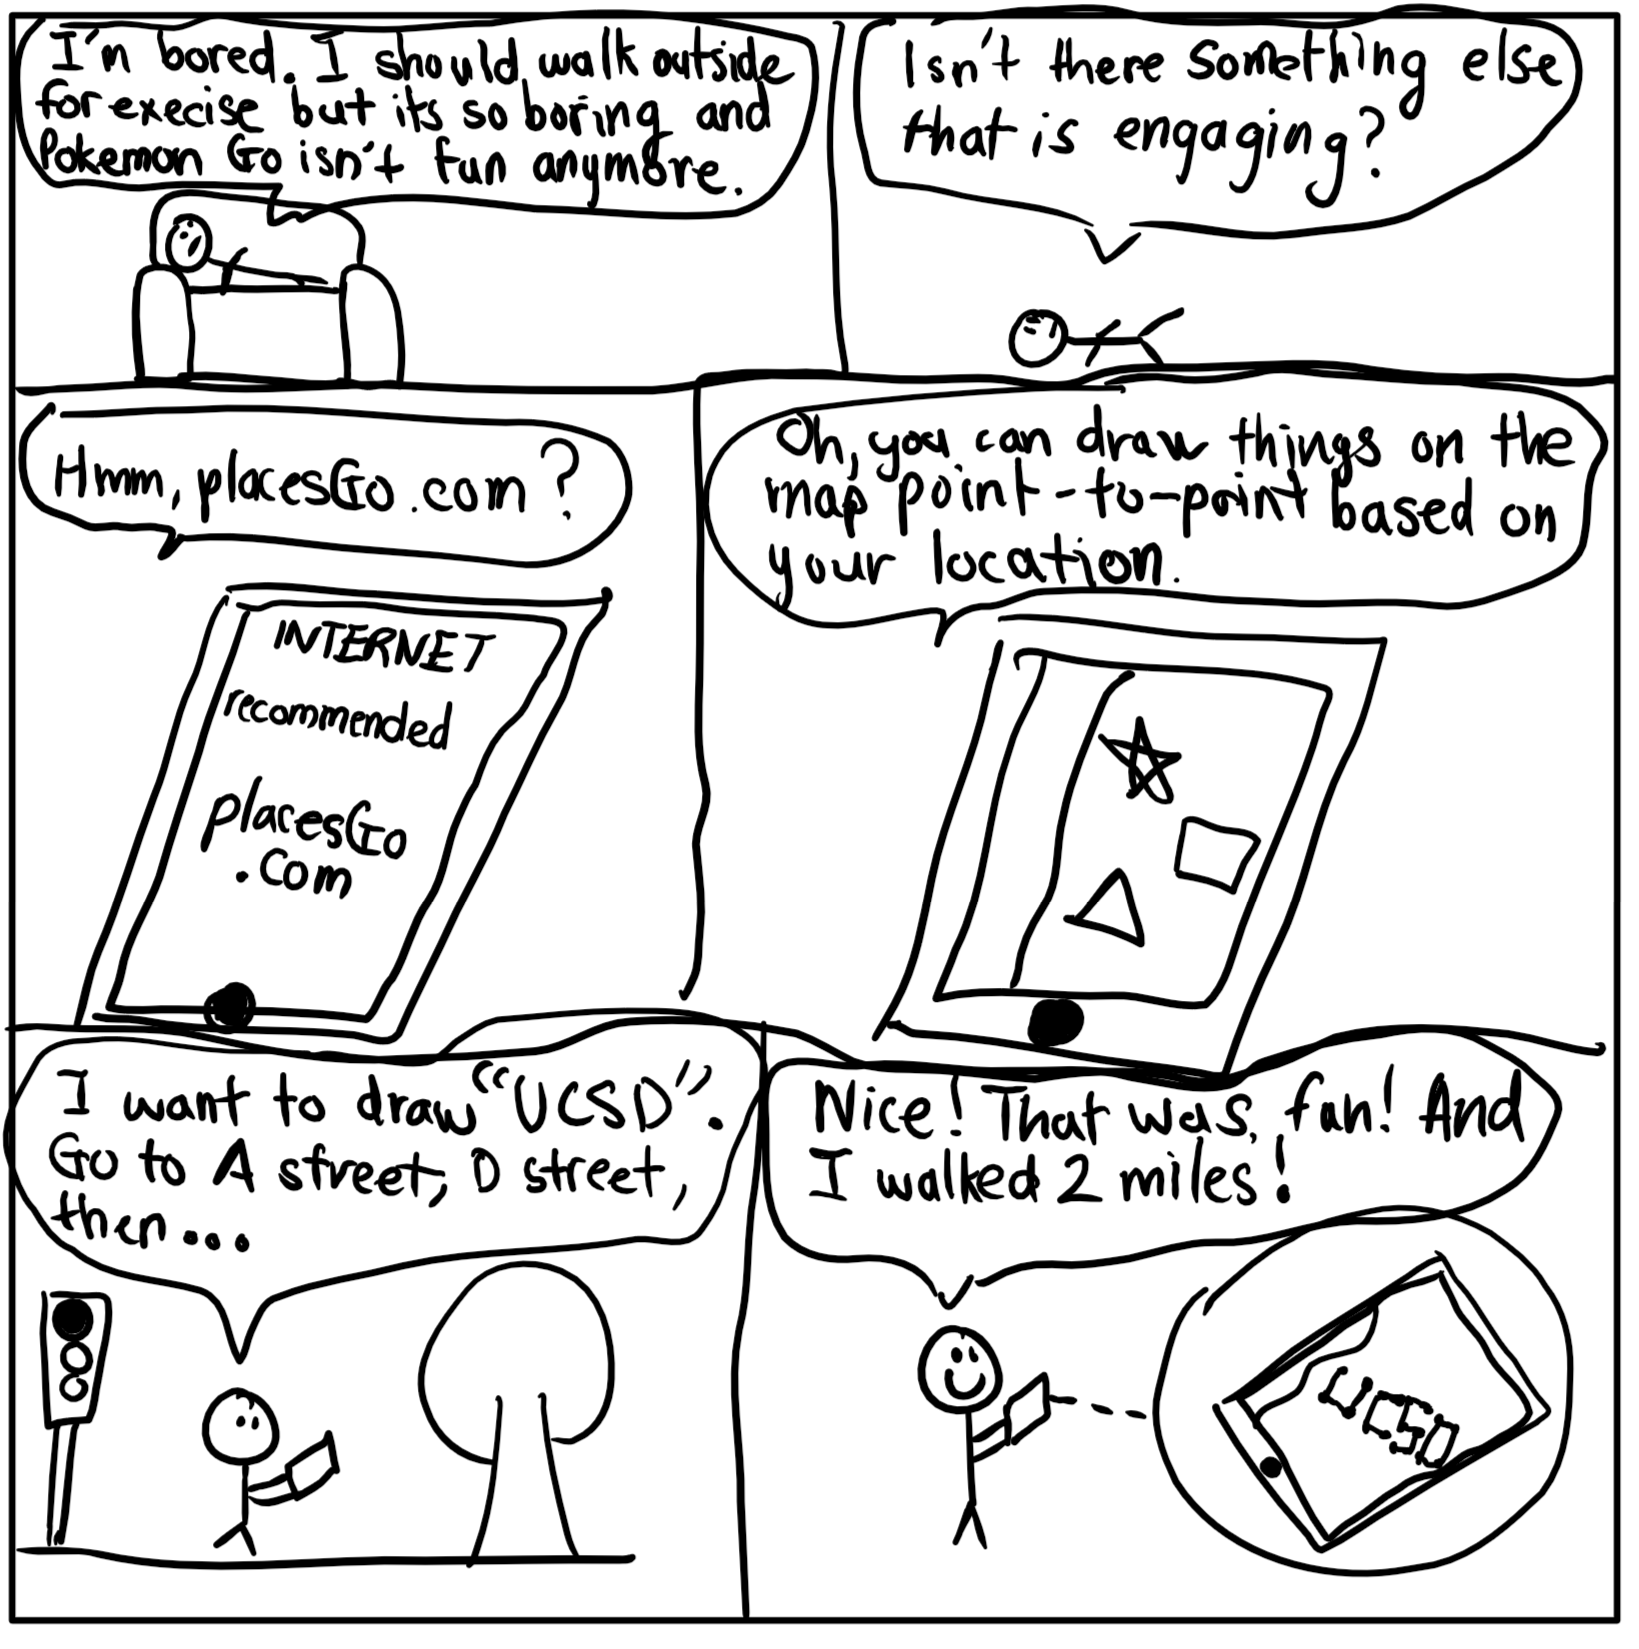 I'm bored. I should walk outside
for execise but its so boring and
Pokemon Go isn't fun anymore.
Isn't there something else
that is engaging?
Hmm, placesGo.com?
INTERNET
recommended
placesGo
.com
Oh, you can draw things on the
map point-to-point based on
your location.
I want to draw "UCSD".
Go to A street, D street,
then...
Nice! That was fun! And
I walked 2 miles!
UCSD